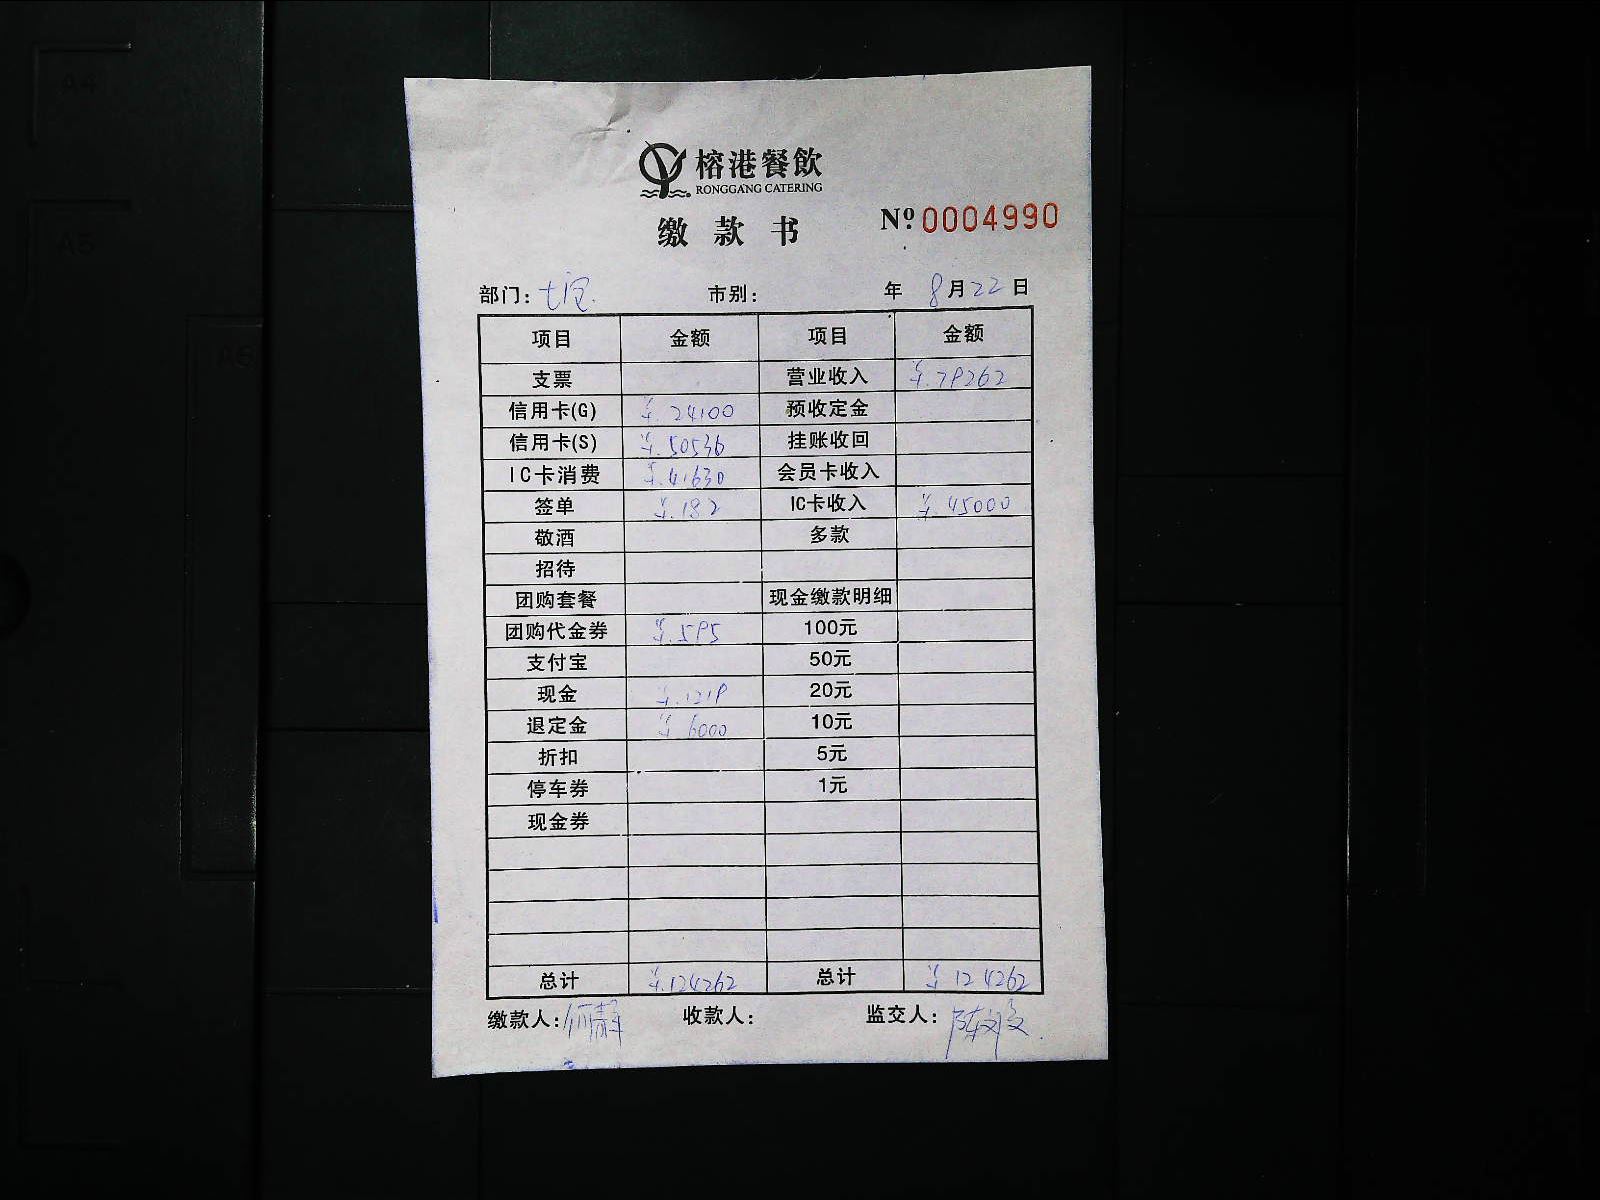 A4
A5
A6
榕港餐飲
RONGGANG CATERING
缴款书
Nº 0004990
部门: 市别: 年 8月22日
项目 金额 项目 金额
支票 营业收入 ¥.79262
信用卡(G) ¥.24100 预收定金
信用卡(S) ¥.50536 挂账收回
IC卡消费 ¥.41630 会员卡收入
签单 ¥.182 IC卡收入 ¥.45000
敬酒 多款
招待
团购套餐 现金缴款明细
团购代金券 ¥.595 100元
支付宝 50元
现金 ¥.1219 20元
退定金 ¥6000 10元
折扣 5元
停车券 1元
现金券
总计 ¥.124262 总计 ¥124262
缴款人:何静 收款人: 监交人: